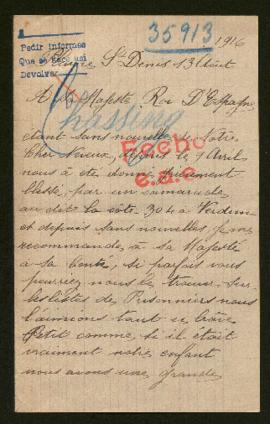 35913
1916
Pedir informes
Que se
Devolver
St Denis 13 Août
A Sa Majesté Roi D'Espagne
étant sans nouvelle de notre
Cher Neveux, depuis le 9 Avril
nous a été donné
blessé, par un camarade
au dit la côte 304 a Verdun
et depuis sans nouvelles, je me
recommande, à sa Majesté
à sa bonté, si parfois vous
pourriez nous le trouver sur
les listes de Prisonniers nous
l'aimions tant ce
Petit comme si il était
vraiment notre enfant
nous avons une grande
Chassing
Fecho